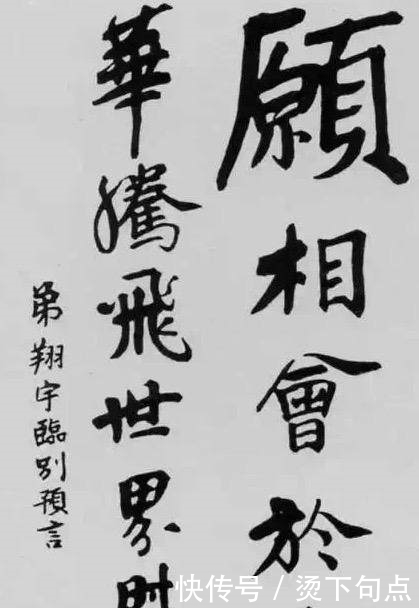 願相會於
華騰飛世界时
弟翔宇臨別預言
快传号/烫下句点